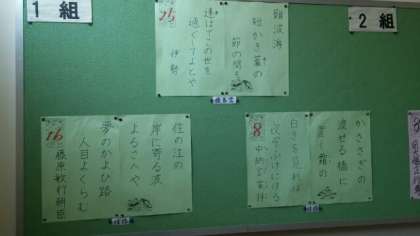 1組
2組
25
難波潟
短かき蘆の
節の間も
逢はでこの世を
過ぐしてよとや
伊勢
かささぎの
渡せる橋に
置く霜の
白きを見れば
夜ぞふけにける
8
中納言家持
住の江の
岸に寄る波
よるさへや
夢のかよひ路
人目よくらむ
16
藤原敏行朝臣